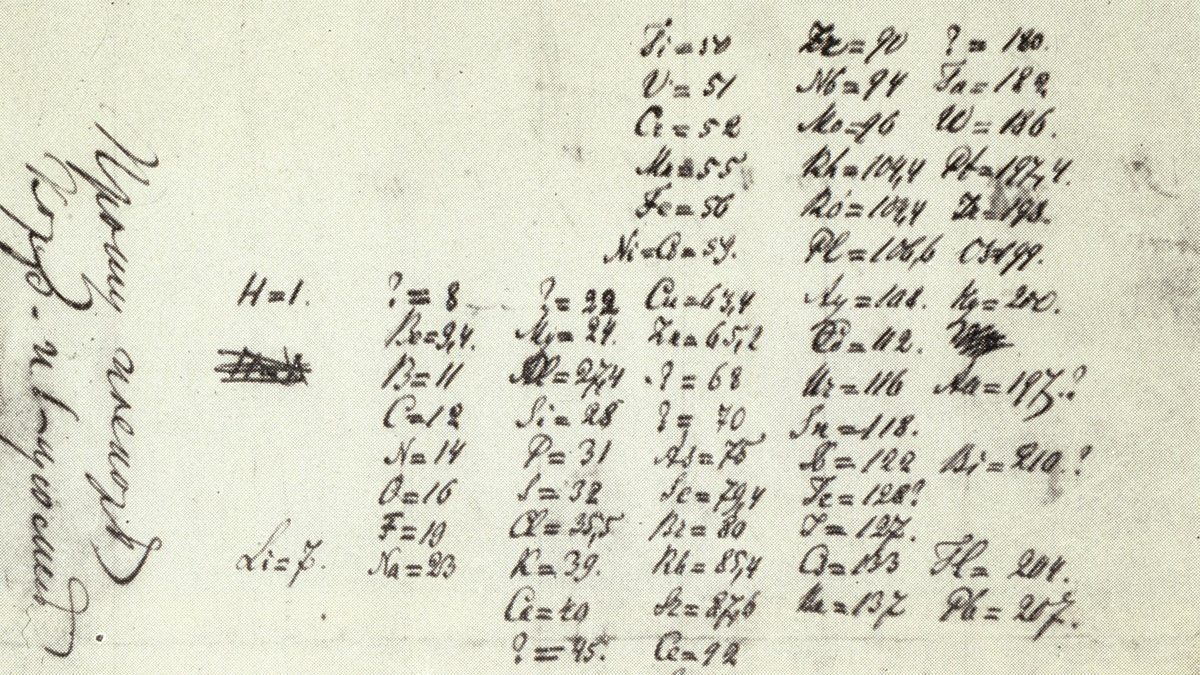 Ti = 50 Zr = 90 ? = 180.
V = 51 Nb = 94 Ta = 182
Cr = 52 Mo = 96 W = 186.
Mn = 55 Rh = 104,4 Pt = 197,4.
Fe = 56 Ru = 104,4 Ir = 198.
Ni = Co = 59. Pl = 106,6 Os = 199.
H = 1. ? = 8 ? = 22 Cu = 63,4 Ag = 108. Hg = 200.
Be = 9,4. Mg = 24. Zn = 65,2 Cd = 112.
B = 11 Al = 27,4 ? = 68 Ur = 116 Au = 197?
C = 12 Si = 28 ? = 70 Sn = 118.
N = 14 P = 31 As = 75 Sb = 122 Bi = 210?
O = 16 S = 32 Se = 79,4 Te = 128?
F = 19 Cl = 35,5 Br = 80 J = 127.
Li = 7. Na = 23 K = 39. Rb = 85,4 Cs = 133 Tl = 204.
Ca = 40 Sr = 87,6 Ba = 137 Pb = 207.
? = 45. Ce = 92
Прошу